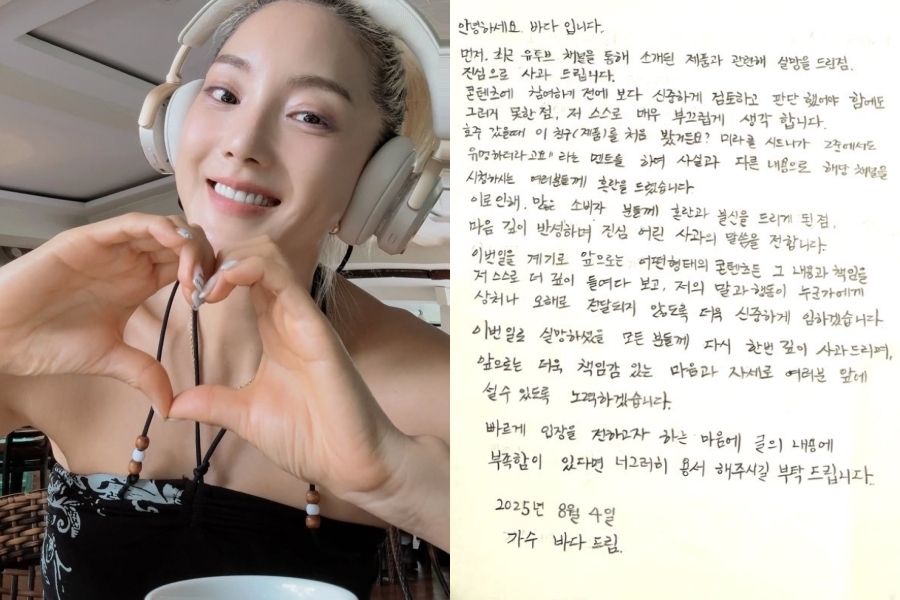 안녕하세요 바다 입니다.
먼저, 최근 유투브 채널을 통해 소개된 제품과 관련해 실망을 드린점.
진심으로 사과 드립니다.
콘텐츠에 참여하기 전에 보다 신중하게 검토하고 판단 했어야 함에도
그러지 못한 점, 저 스스로 매우 부끄럽게 생각 합니다.
호주 갔을때 이 친구(제품)를 처음 봤거든요? 미라클 시드니가 고주에서도
유명하더라고요" 라는 멘트를 하여 사실과 다른 내용으로 해당 채널을
시청하시는 여러분들께 혼란을 드렸습니다
이로 인해, 많은 소비자 분들께 혼란과 불신을 드리게 된 점.
마음 깊이 반성하며 진심 어린 사과의 말씀을 전합니다.
이번일을 계기로 앞으로는 어떤형태의 콘텐츠든 그 내용과 책임을
저 스스로 더 깊이 들여다 보고, 저의 말과 행동이 누군가에게
상처나 오해로 전달되지 않도록 더욱 신중하게 임하겠습니다
이번 일로 실망하셨을 모든 분들께 다시 한번 깊이 사과드리며,
앞으로는 더욱 책임감 있는 마음과 자세로 여러분 앞에
설 수 있도록 노력하겠습니다.
빠르게 입장을 전하고자 하는 마음에 글의 내용에
부족함이 있다면 너그러히 용서 해주시길 부탁 드립니다.
2025년 8월 4일
가수 바다 드림.